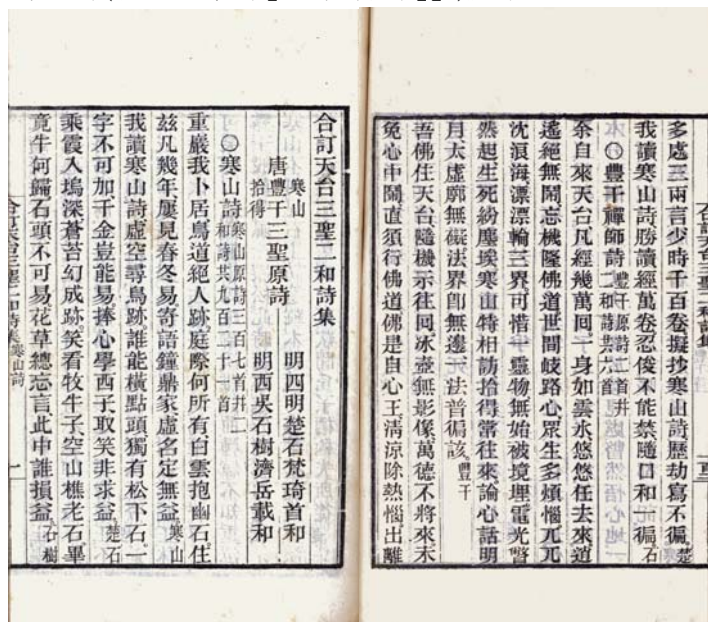 多處三兩言少時千百卷擬抄寒山詩歷劫寫不徧。楚
我讀寒山詩勝讀經萬卷忍俊不能禁隨口和一徧。石
〇豐干禪師詩豐干原詩二首幷二和詩共六首
余自來天台凡經幾萬回一身如雲水悠悠任去來逍
遙絕無鬧忘機隆佛道世間岐路心眾生多煩惱兀兀
沈浪海漂漂輪三界可惜一靈物無始被境埋電光瞥
然起生死紛塵埃寒山特相訪拾得常往來論心話明
月太虛廓無礙法界卽無邊一法普徧該。豐干
吾佛住天台隨機示往囘冰壺無影像萬德不將來未
免心中鬧直須行佛道佛是自心王清涼除熱惱出離
合訂天台三聖二和詩集
唐寒山豐干拾得三聖原詩 明四明楚石梵琦首和
明西吳石樹濟岳載和
〇寒山詩寒山原詩三百七首幷二和詩共九百二十一首
重巖我卜居鳥道絕人跡庭際何所有白雲抱幽石住
茲凡幾年屢見春冬易寄語鐘鼎家虛名定無益。寒山
我讀寒山詩虛空尋鳥跡。誰能橫點頭獨有松下石。一
字不可加千金豈能易。捧心學西子取笑非求益。楚石
乘霞入塢深蒼苔幻成跡。笑看牧牛子空山樵老石。畢
竟牛何歸石頭不可易花草總忘言此中誰損益。石樹
合訂天台三聖二和詩集 寒山詩 一